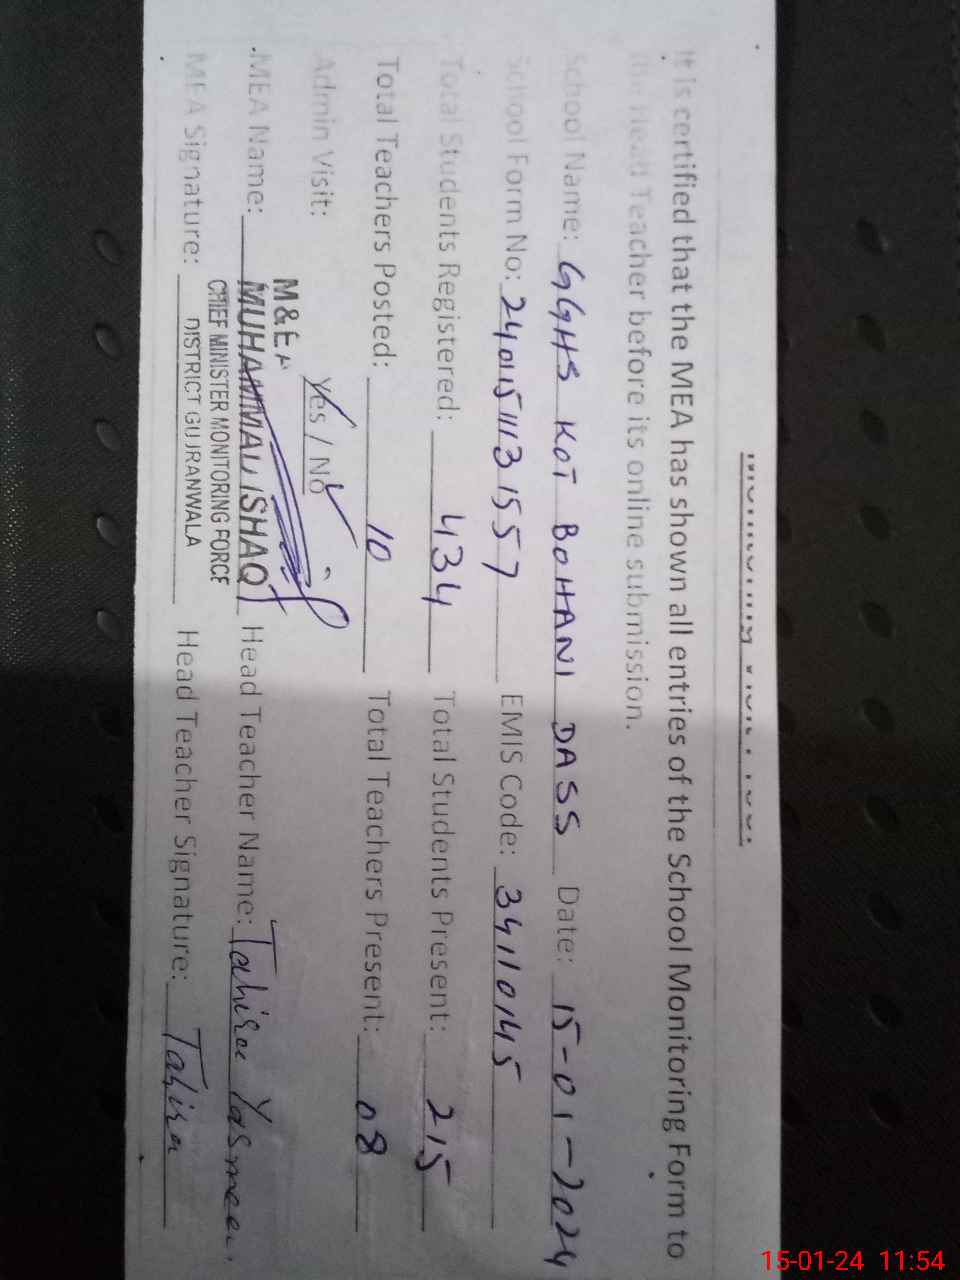 It is certified that the MEA has shown all entries of the School Monitoring Form to
the Head Teacher before its online submission.
School Name: GGHS KOT BOHANI DASS Date: 15-01-2024
School Form No: 2401151113 1557 EMIS Code: 34110145
Total Students Registered: 434 Total Students Present: 215
Total Teachers Posted: 10 Total Teachers Present: 08
Admin Visit: Yes / No
M&EA
MEA Name: MUHAMMAD ISHAQ Head Teacher Name: Tahira Yasmeen
CHIEF MINISTER MONITORING FORCE
MEA Signature: DISTRICT GUJRANWALA Head Teacher Signature: Tahira
15-01-24 11:54